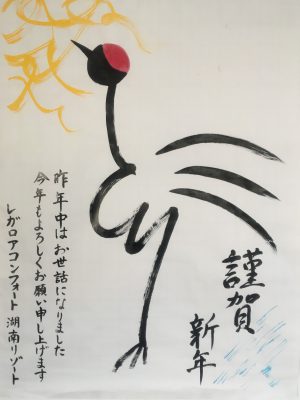 謹賀
新年
昨年中はお世話になりました
今年もよろしくお願い申し上げます
レガロアコンフォート 湖南リゾート